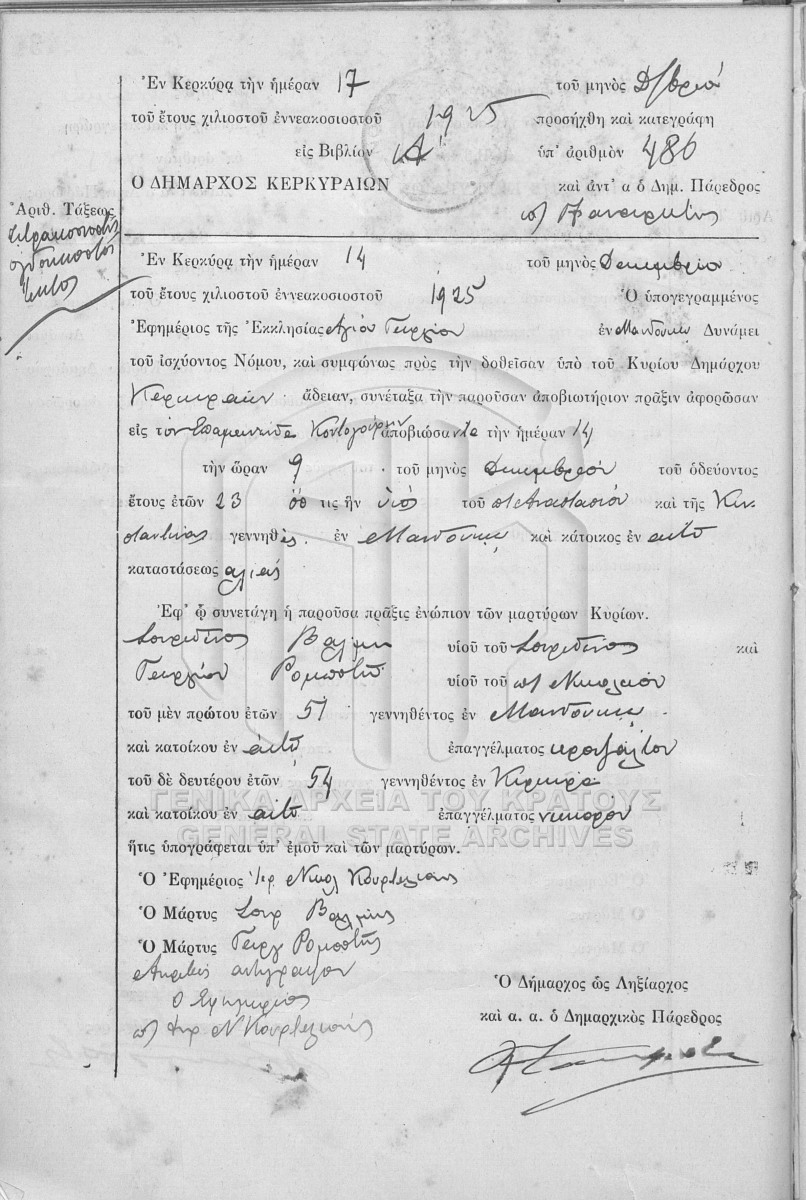 Ἐν Κερκύρᾳ τὴν ἡμέραν 17 τοῦ μηνὸς Δ/βρίου
τοῦ ἔτους χιλιοστοῦ ἐννεακοσιοστοῦ 1925 προσήχθη καὶ κατεγράφη
εἰς Βιβλίον Α' ὑπ' ἀριθμὸν 486
Ο ΔΗΜΑΡΧΟΣ ΚΕΡΚΥΡΑΙΩΝ καὶ ἀντ' α ὁ Δημ. Πάρεδρος
Ἀριθ. Τάξεως
τετρακοσιοστὸς
ὀγδοηκοστὸς
ἕκτος
Ἐν Κερκύρᾳ τὴν ἡμέραν 14 τοῦ μηνὸς Δεκεμβρίου
τοῦ ἔτους χιλιοστοῦ ἐννεακοσιοστοῦ 1925 Ὁ ὑπογεγραμμένος
Ἐφημέριος τῆς Ἐκκλησίας Ἁγίου Γεωργίου ἐν Μανδούκι Δυνάμει
τοῦ ἰσχύοντος Νόμου, καὶ συμφώνως πρὸς τὴν δοθεῖσαν ὑπὸ τοῦ Κυρίου Δημάρχου
Κερκυραίων ἄδειαν, συνέταξα τὴν παροῦσαν ἀποβιωτήριον πρᾶξιν ἀφορῶσαν
εἰς τὸν Επαμεινώνδα ἀποβιώσαντα τὴν ἡμέραν 14
τὴν ὥραν 9 τοῦ μηνὸς Δεκεμβρίου τοῦ ὁδεύοντος
ἔτους ἐτῶν 23 ὅς τις ἦν υἱὸς τοῦ π Αναστασίου καὶ τῆς Κων
σταντίνας γεννηθεὶς ἐν Μανδούκι καὶ κάτοικος ἐν αὐτῷ
καταστάσεως
Ἐφ' ᾧ συνετάγη ἡ παροῦσα πρᾶξις ἐνώπιον τῶν μαρτύρων Κυρίων.
Σπυρίδωνος Βαλμη υἱοῦ τοῦ Σπυρίδωνος καὶ
Γεωργίου Ρομποτῆ υἱοῦ τοῦ π Νικολάου
τοῦ μὲν πρώτου ἐτῶν 51 γεννηθέντος ἐν Μανδούκι
καὶ κατοίκου ἐν αὐτῷ ἐπαγγέλματος
τοῦ δὲ δευτέρου ἐτῶν 54 γεννηθέντος ἐν Κέρκυρα
καὶ κατοίκου ἐν αὐτῷ ἐπαγγέλματος νεωκόρου
ἥτις ὑπογράφεται ὑπ' ἐμοῦ καὶ τῶν μαρτύρων.
ΓΕΝΙΚΑ ΑΡΧΕΙΑ ΤΟΥ ΚΡΑΤΟΥΣ
GENERAL STATE ARCHIVES
Ὁ Ἐφημέριος Ἱερ Νικολ Κουρτελέσης
Ὁ Μάρτυς Σπυρ Βαλμης
Ὁ Μάρτυς Γεωργ Ρομποτῆς
Ακριβὲς αντίγραφον
ο Εφημέριος
Ὁ Δήμαρχος ὡς Ληξίαρχος
καὶ α. α. ὁ Δημαρχικὸς Πάρεδρος